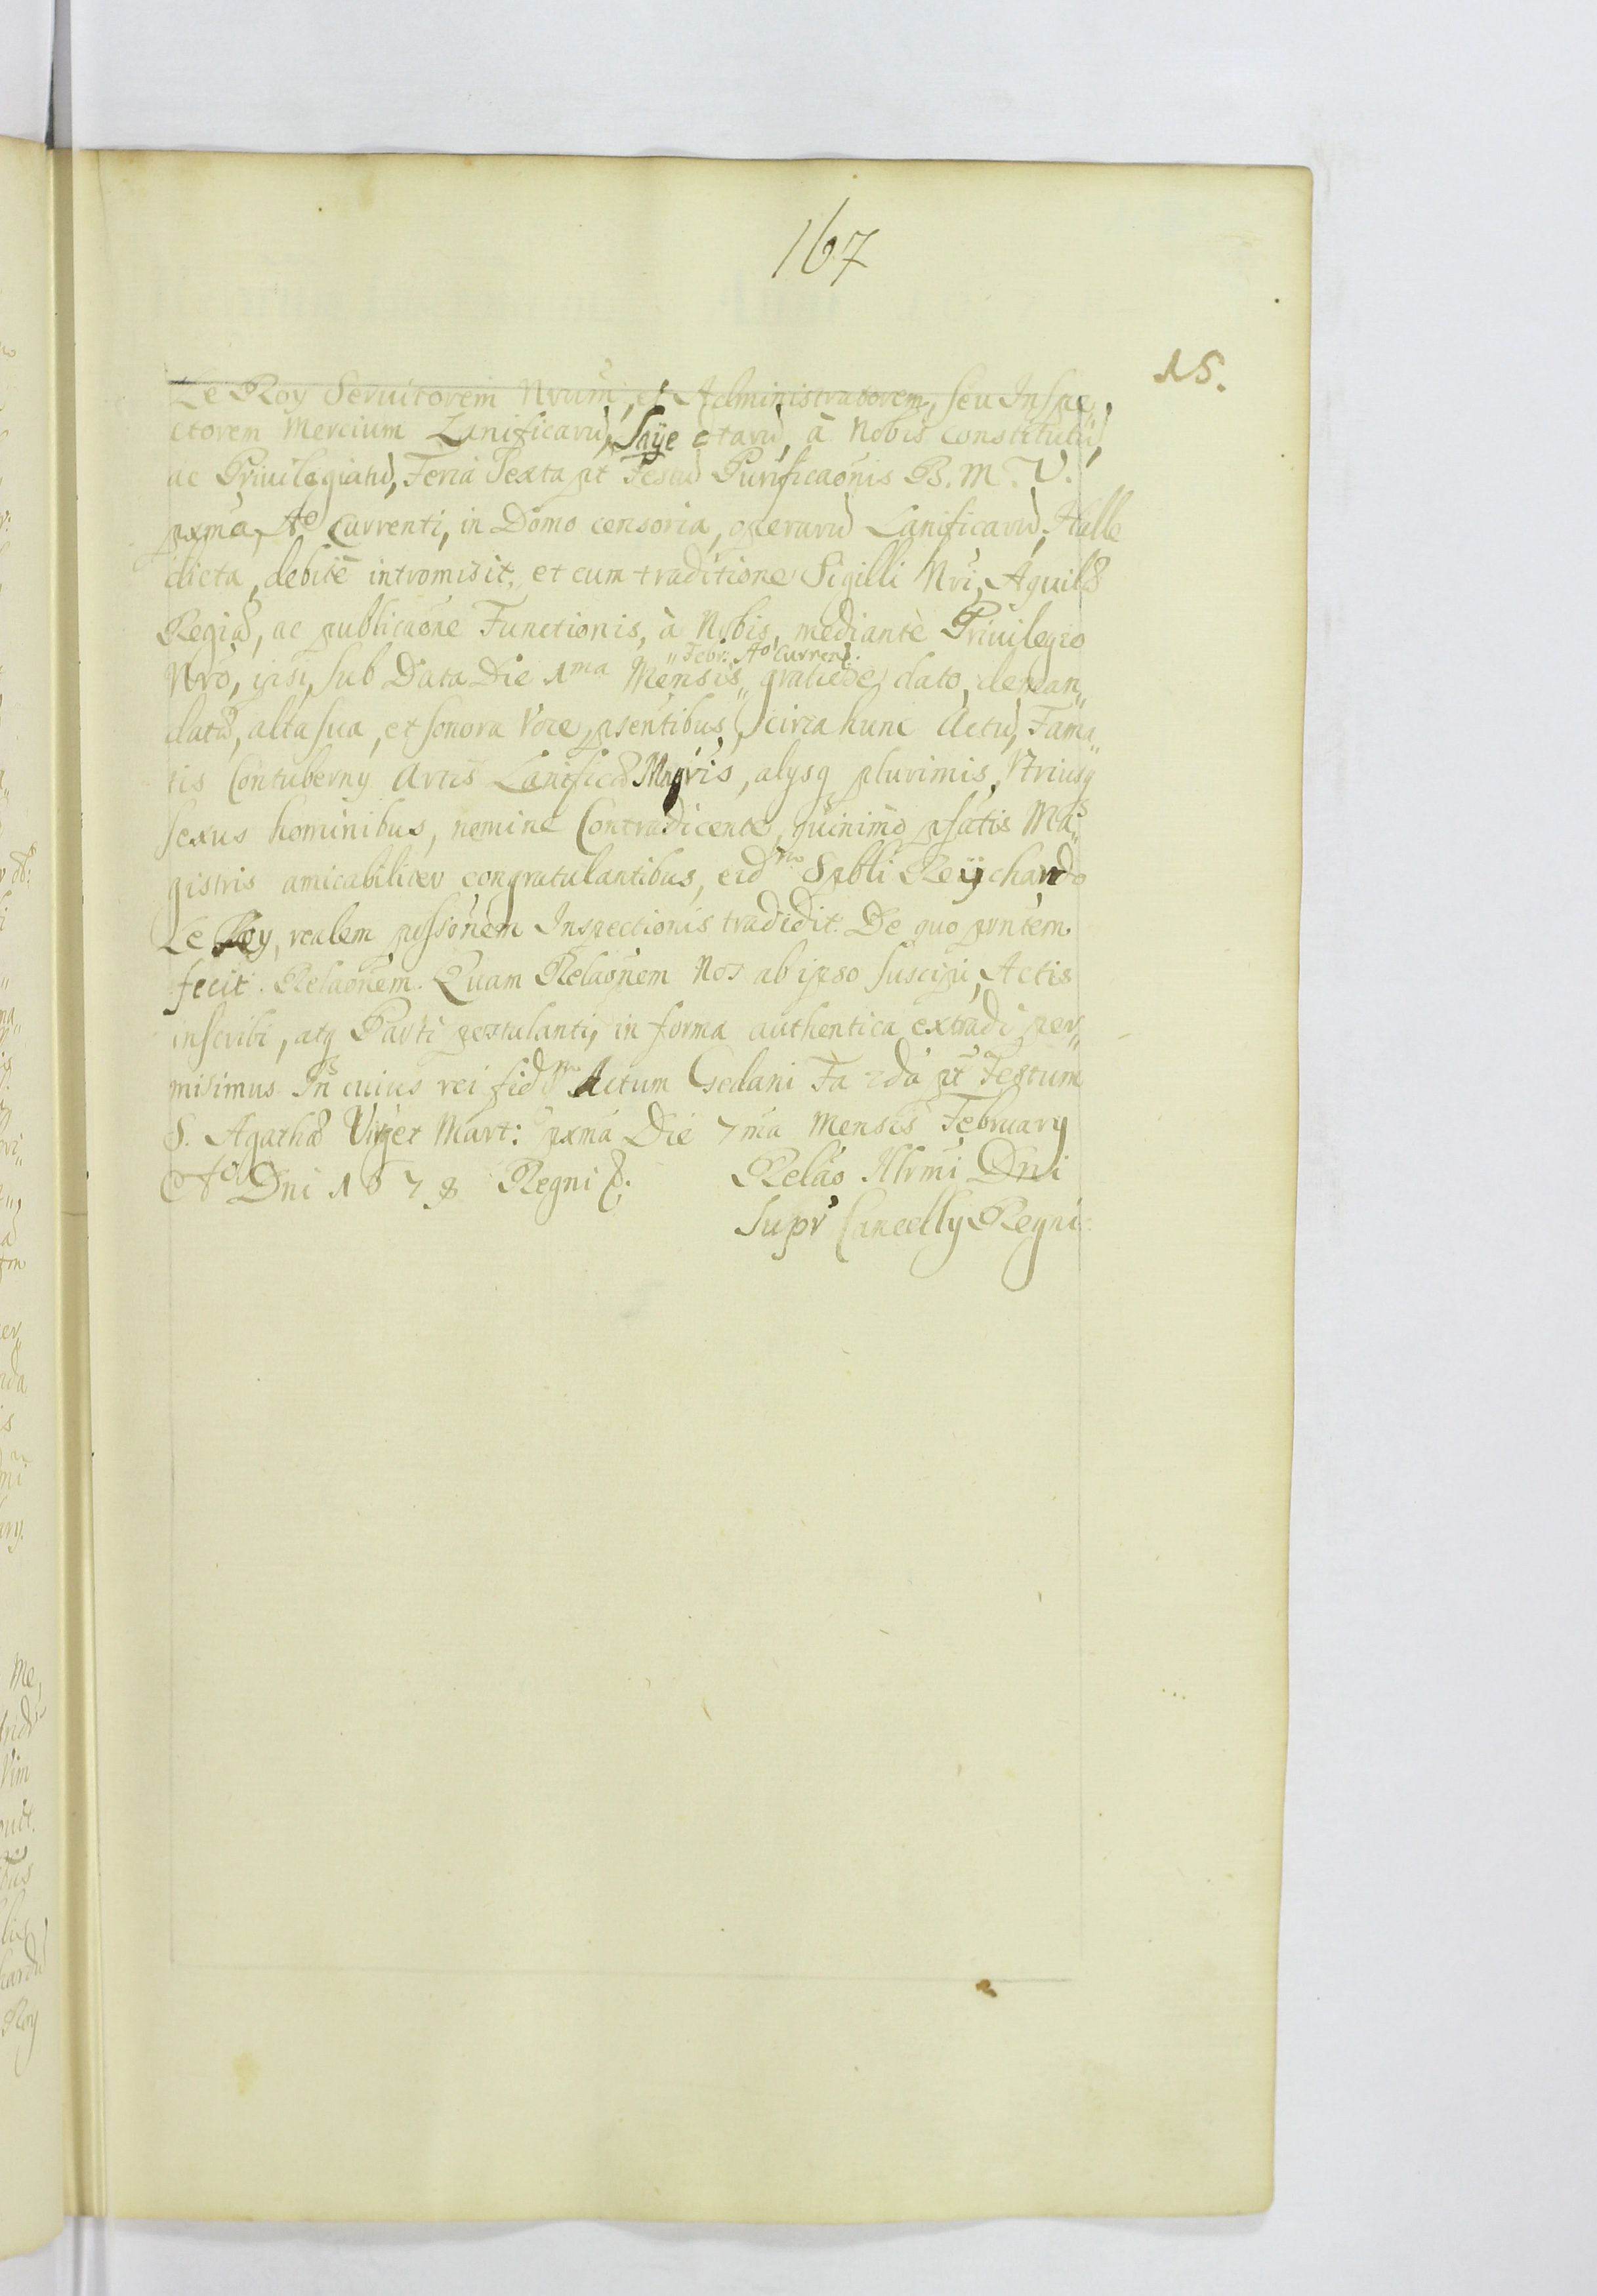 167
15.
Le Roy Seruitorem Nrum, et Administratorem, seu Inspe„
ctorem Mercium Lanificarū, Saÿe etarū, à Nobis constitutū,
ac Priuilegiatū, Feria Sexta pt Festū Purificaōnis B. M. V.
pxma, Aō Currenti, in Domo censoria, operarū Lanificarū, Halle
dicta, debitè intromisit, et cum traditione Sigilli Nri, Aquilæ
Regiæ, ac publicaōne Functionis, à Nobis, mediantè Priuilegio
„Febr: Aō Curren:
Nrō, ipsi, sub Data Die 1ma Mensis„ gratiōse dato, deman„
datæ, alta sua, et sonora Voce, psentibus, circa hunc Actū, Fama„
tis Contuberny Artis Lanificæ Mngris, alysq plurimis, Vtriusq
sexus hominibus, nemine Contradicente, quinimò pfatis Ma„
gistris amicabiliter congratulantibus, eidm Spbli Reÿchardo
Le Roy, realem possōnem Inspectionis tradidit. De quo pntem
fecit Relaōnem. Quam Relaōnem Nos ab ipso suscipi, Actis
inscribi, atq Parti postulanti, in forma authentica extradi per„
misimus. In cuius rei fidm Actum Gedani Fa 2da pt Festum
S. Agathæ Virg: et Mart: pxma Die 7ma Mensis February
Aō Dni 1678 Regni &.
Relāo Illrmi Dni
Supr Cancelly Regni